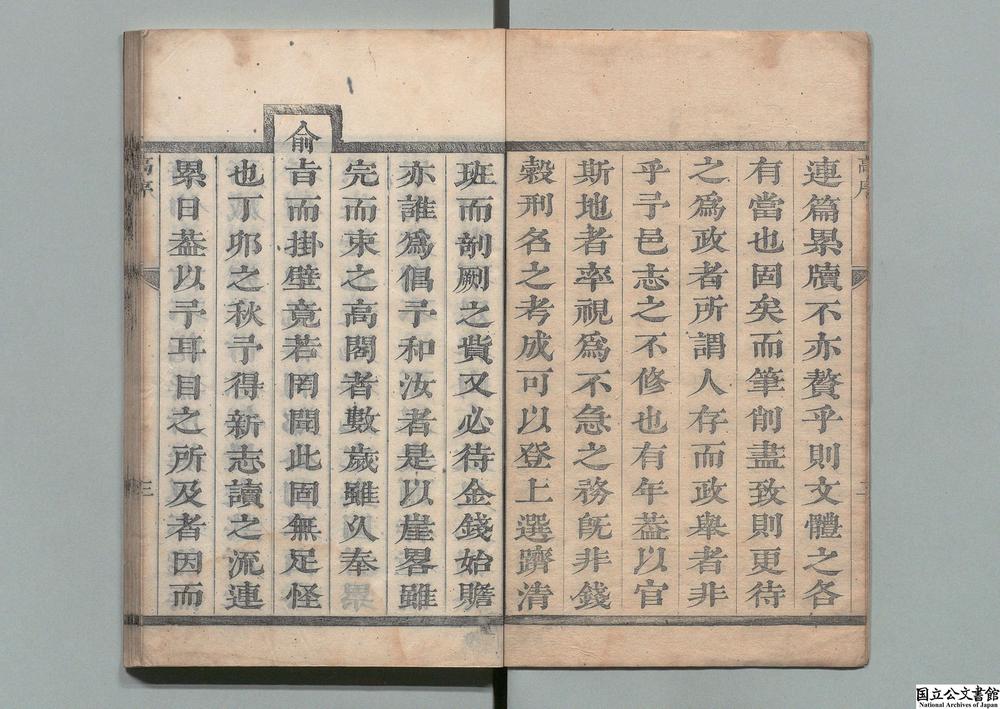 連篇累牘不亦贅乎則文體之各
有當也固矣而筆削盡致則更待
之爲政者所謂人存而政舉者非
乎予邑志之不修也有年葢以官
斯地者率視爲不急之務旣非錢
穀刑名之考成可以登上選躋清
高序
二
班而剞劂之貲又必待金錢始贍
亦誰爲倡予和汝者是以崖畧雖
完而束之高閣者數歲雖久奉
俞
旨而掛壁竟若罔聞此固無足怪
也丁夘之秋予得新志讀之流連
累日葢以予耳目之所及者因而
高序
三
国立公文書館
National Archives of Japan